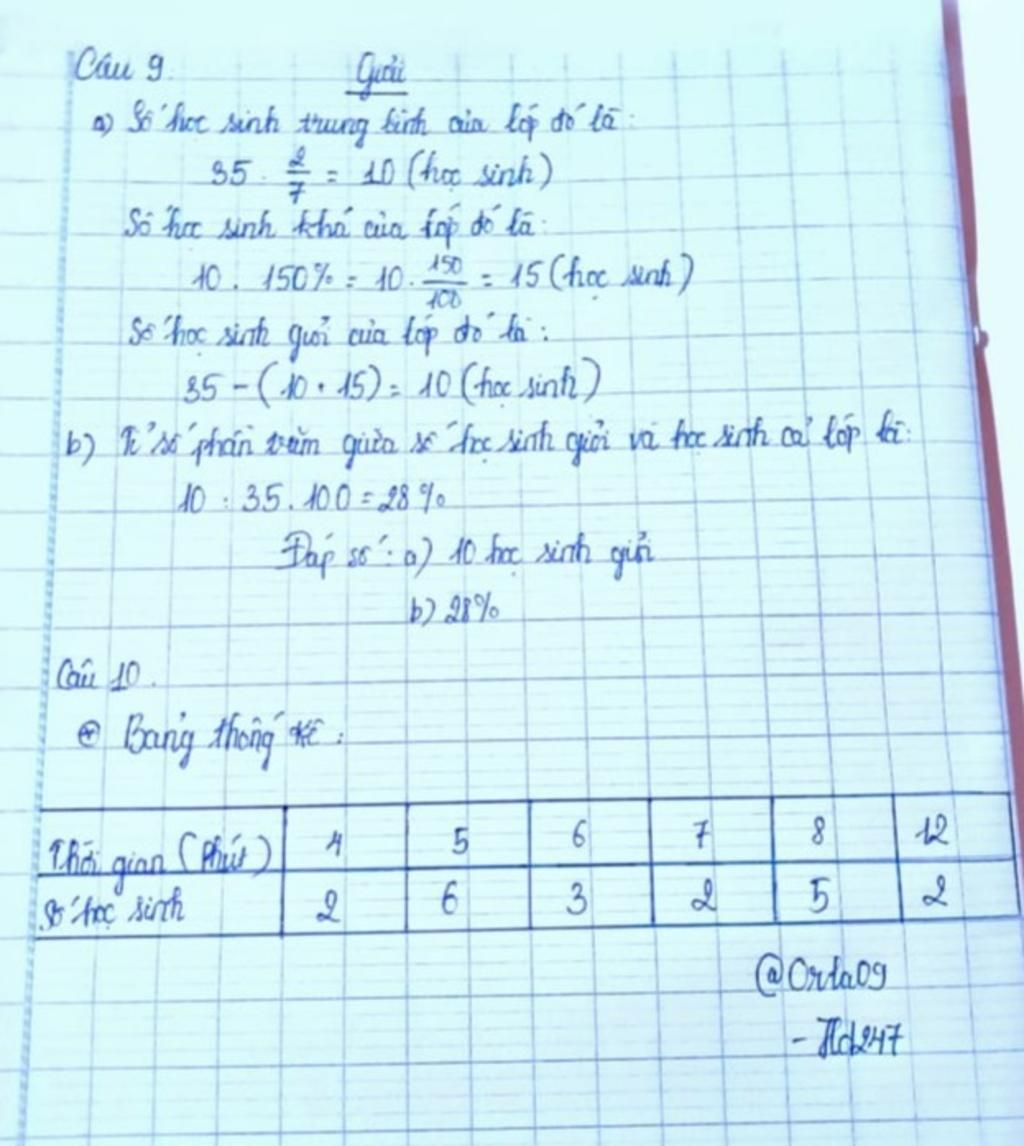 Câu 9. Giải
a) Số học sinh trung bình của lớp đó là:
35 . 2/7 = 10 (học sinh)
Số học sinh khá của lớp đó là:
10 . 150% = 10 . 150/100 = 15 (học sinh)
Số học sinh giỏi của lớp đó là:
35 - (10 + 15) = 10 (học sinh)
b) Tỉ số phần trăm giữa số học sinh giỏi và học sinh cả lớp là:
10 : 35 . 100 = 28%
Đáp số: a) 10 học sinh giỏi
b) 28%
Câu 10.
* Bảng thống kê:
Thời gian (Phút) 4 5 6 7 8 12
Số học sinh 2 6 3 2 5 2
@Orla09